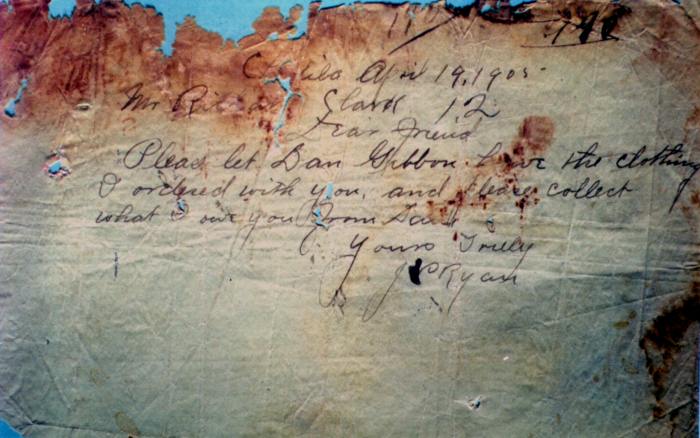 April 19, 1905
Mr Clark 12
Dear Friend
Pleas let Dan Gibbon have the clothing
I ordered with you, and please collect
what I owe you from Dan
Yours Truly
J P Ryan